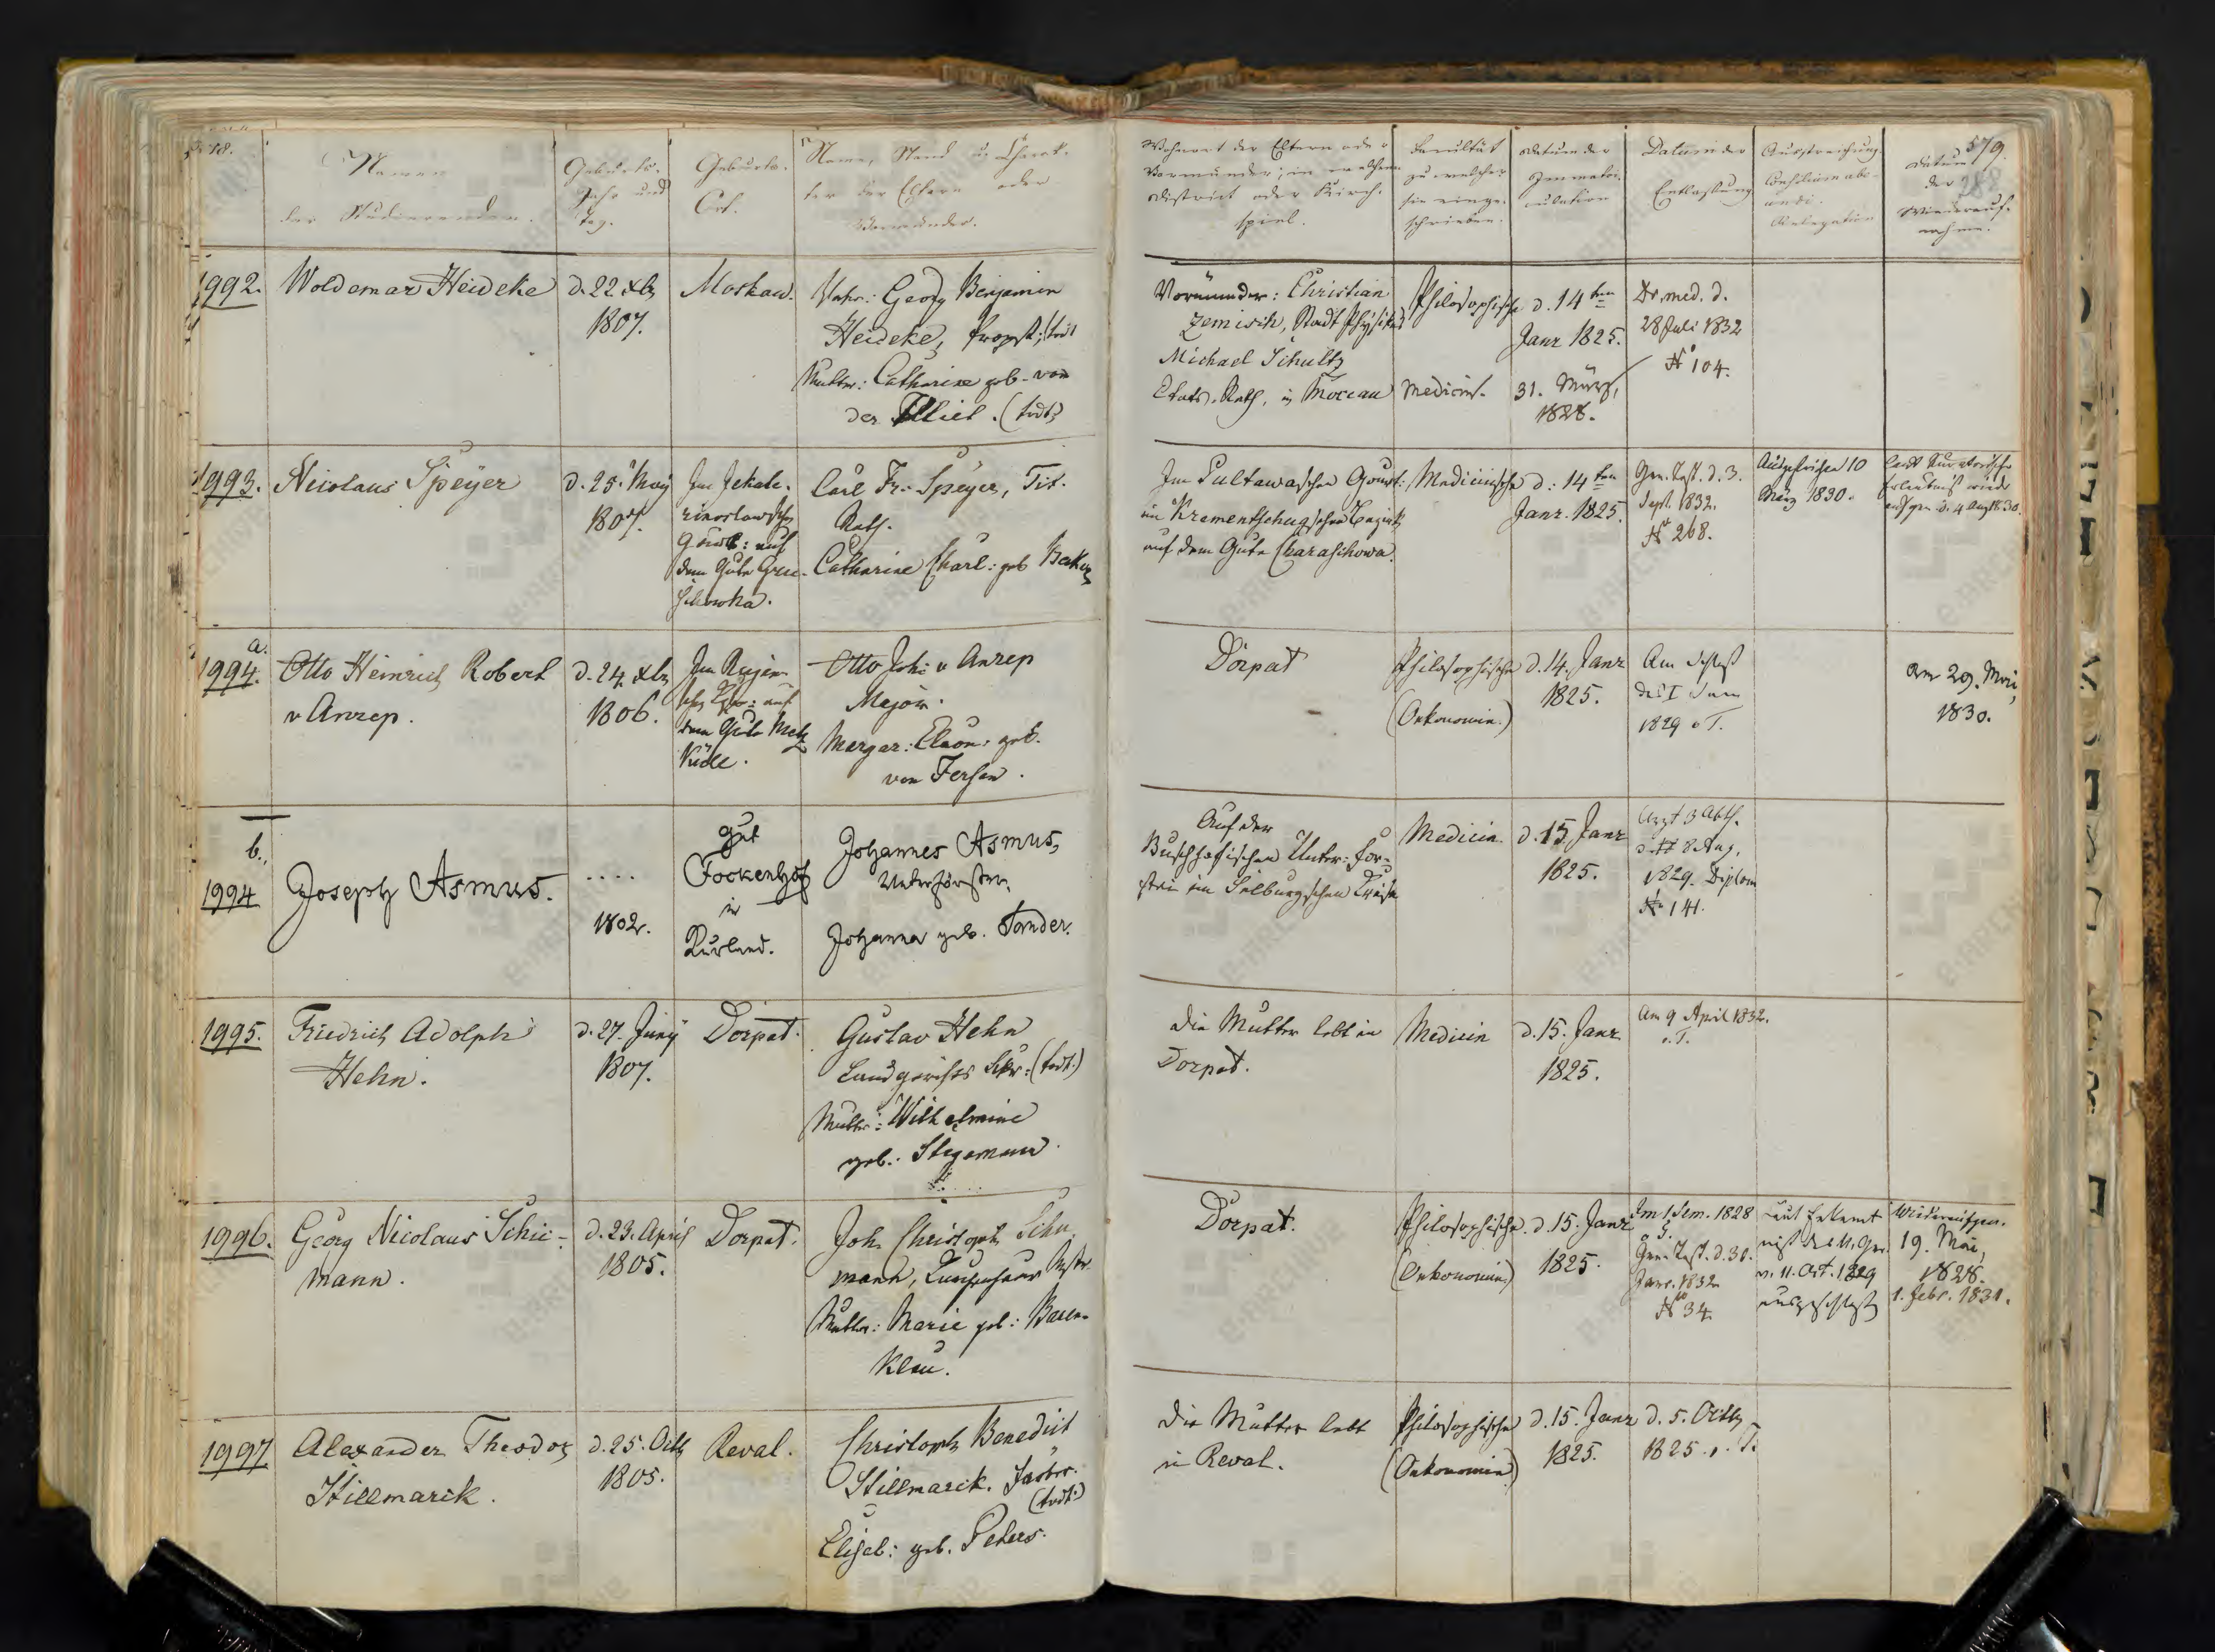 578.
Namen
der Studierenden.
Geburts-
Jahr und
Tag.
Geburts-
Ort.
Name, Stand u. Charak-
ter der Eltern oder
Vormünder.
Wohnort der Eltern oder
Vormünder; in welchem
District oder Kirch-
spiel.
Facultät
zu welcher
sie einge-
schrieben.
Datum der
Immatri-
culation
Datum der
Entlassung
Ausstreichung.
Consilium abe-
undi.
Relegation
579.
Datum
der
Wiederauf-
nahme.
1992.
Woldemar Heideke
d. 22 xbr
1807.
Moskau.
Vater: Georg Benjamin
Heideke, Propst, (todt
Mutter: Catharine geb. von
der Vliet. (todt)
Vormünder: Christian
Zemisch, Stadt Physikus
Michael Schultz
Etats-Rath, in Moscau
Philosophische
Medicin.
d. 14ten
Janr 1825.
31. März,
1828.
Dr. med. d.
28 Juli 1832
No 104.
1993.
Nicolaus Speyer
d. 25. May
1807.
Im Jekate-
rinoslawschen
Gouv: auf
dem Gute Gru-
schewka.
Carl Fr. Speyer, Tit.
Rath.
Catharine Charl: geb
Im Pultawaschen Gouvt:
im Krementschugschen Bezirk
auf dem Gute Charaschowa.
Medicinische
d: 14ten
Janr. 1825.
Grad. Test. d. 3.
Sept. 1832.
No 268.
Ausgestrichen 10
März 1830.
d. 4 Aug 1830.
1994.
a.
Otto Heinrich Robert
v Anrep.
d. 24. xbr
1806.
Im Rujen-
schen Ksp: auf
dem Gute Metz
Küll.
Otto Joh: v Anrep
Major.
Margar: Eleon: geb.
von Fersen.
Dörpat
Philosophische
(Oekonomie.)
d. 14. Janr
1825.
Am Schluß
des I Sem
1829 o. T.
Am 29. Mai,
1830.
b.
1994
Joseph Asmus.
....
1802.
Gut
Fockenhof
in
Kurland.
Johannes Asmus,
Unterförster.
Johanna geb. Sander.
Auf der
Buschhofschen Unter-För-
sterei im Selburgschen Kreise
Medicin.
d. 15. Janr
1825.
Arzt 3 Abth.
d. 8 Aug.
1829. Diplom
No 141.
1995.
Friedrich Adolph
Hehn.
d. 27. Juny
1807.
Dorpat.
Gustav Hehn
Landgerichts Secr: (todt.)
Mutter: Wilhelmine
geb: Stegemann.
Die Mutter lebt in
Dorpat.
Medicin
d. 15. Janr.
1825.
Am 9 April 1832.
o. T.
1996.
Georg Nicolaus Schü-
mann.
d. 23. April
1805.
Dorpat.
Joh. Christoph Schü-
mann,
Mutter: Marie geb: Baren-
klau.
Dorpat.
Philosophische
(Oekonomie)
d. 15. Janr
1825.
Im 1 Sem. 1828
o. T.
Grad. Test. d. 30.
Janr. 1832
No 34.
Laut Erkennt
niß des U. Ger.
v. 11. Oct. 1829
ausgeschloßen
Wiederaufgen.
19. Mai,
1828.
1. Febr. 1831.
1997.
Alexander Theodor
Stillmarck.
d. 25. Octbr
1805.
Reval.
Christoph Benedict
Stillmarck. Pastor.
(todt.)
Elisab: geb. Peters.
Die Mutter lebt
in Reval.
Philosophische
(Oekonomie)
d. 15. Janr
1825.
d. 5. Octbr
1825. o. T.